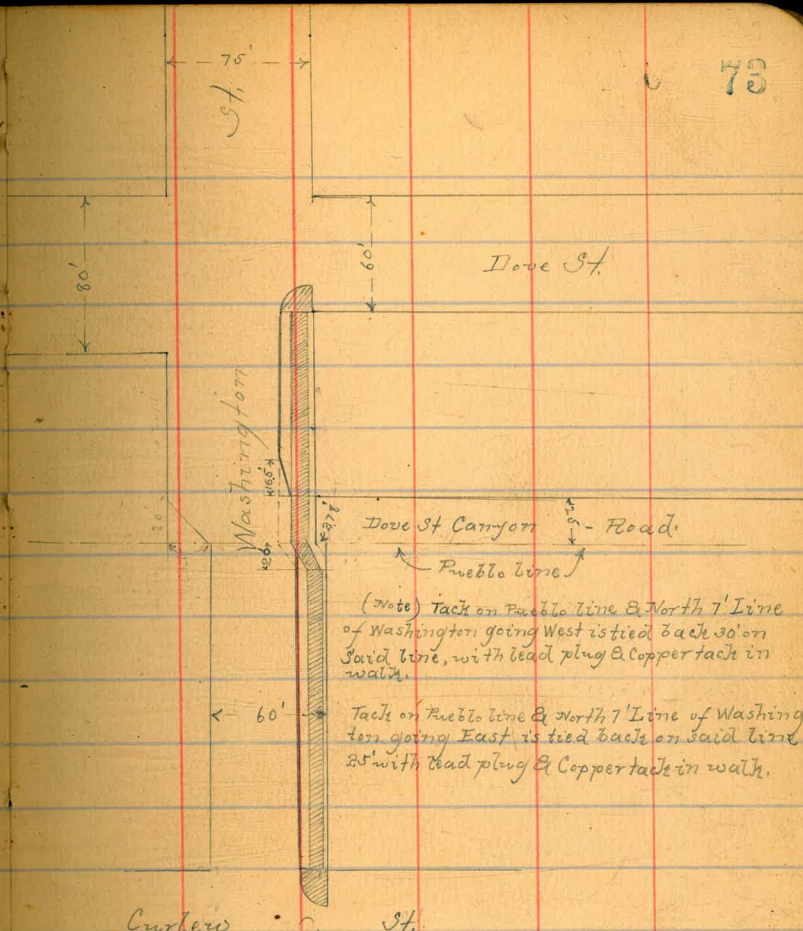 73
75'
St.
80'
60'
Dove St.
Washington
16.5'
Dove St Canyon - Road.
25'
Pueblo line
(Note) Tack on Pueblo line & North 7' Line
of Washington going West is tied back 30' on
Said line, with lead plug & Copper tack in
walk.
60'
Tack on Pueblo line & North 7' Line of Washing
ton going East is tied back on said line
25' with lead plug & Copper tack in walk.
Curlew St.